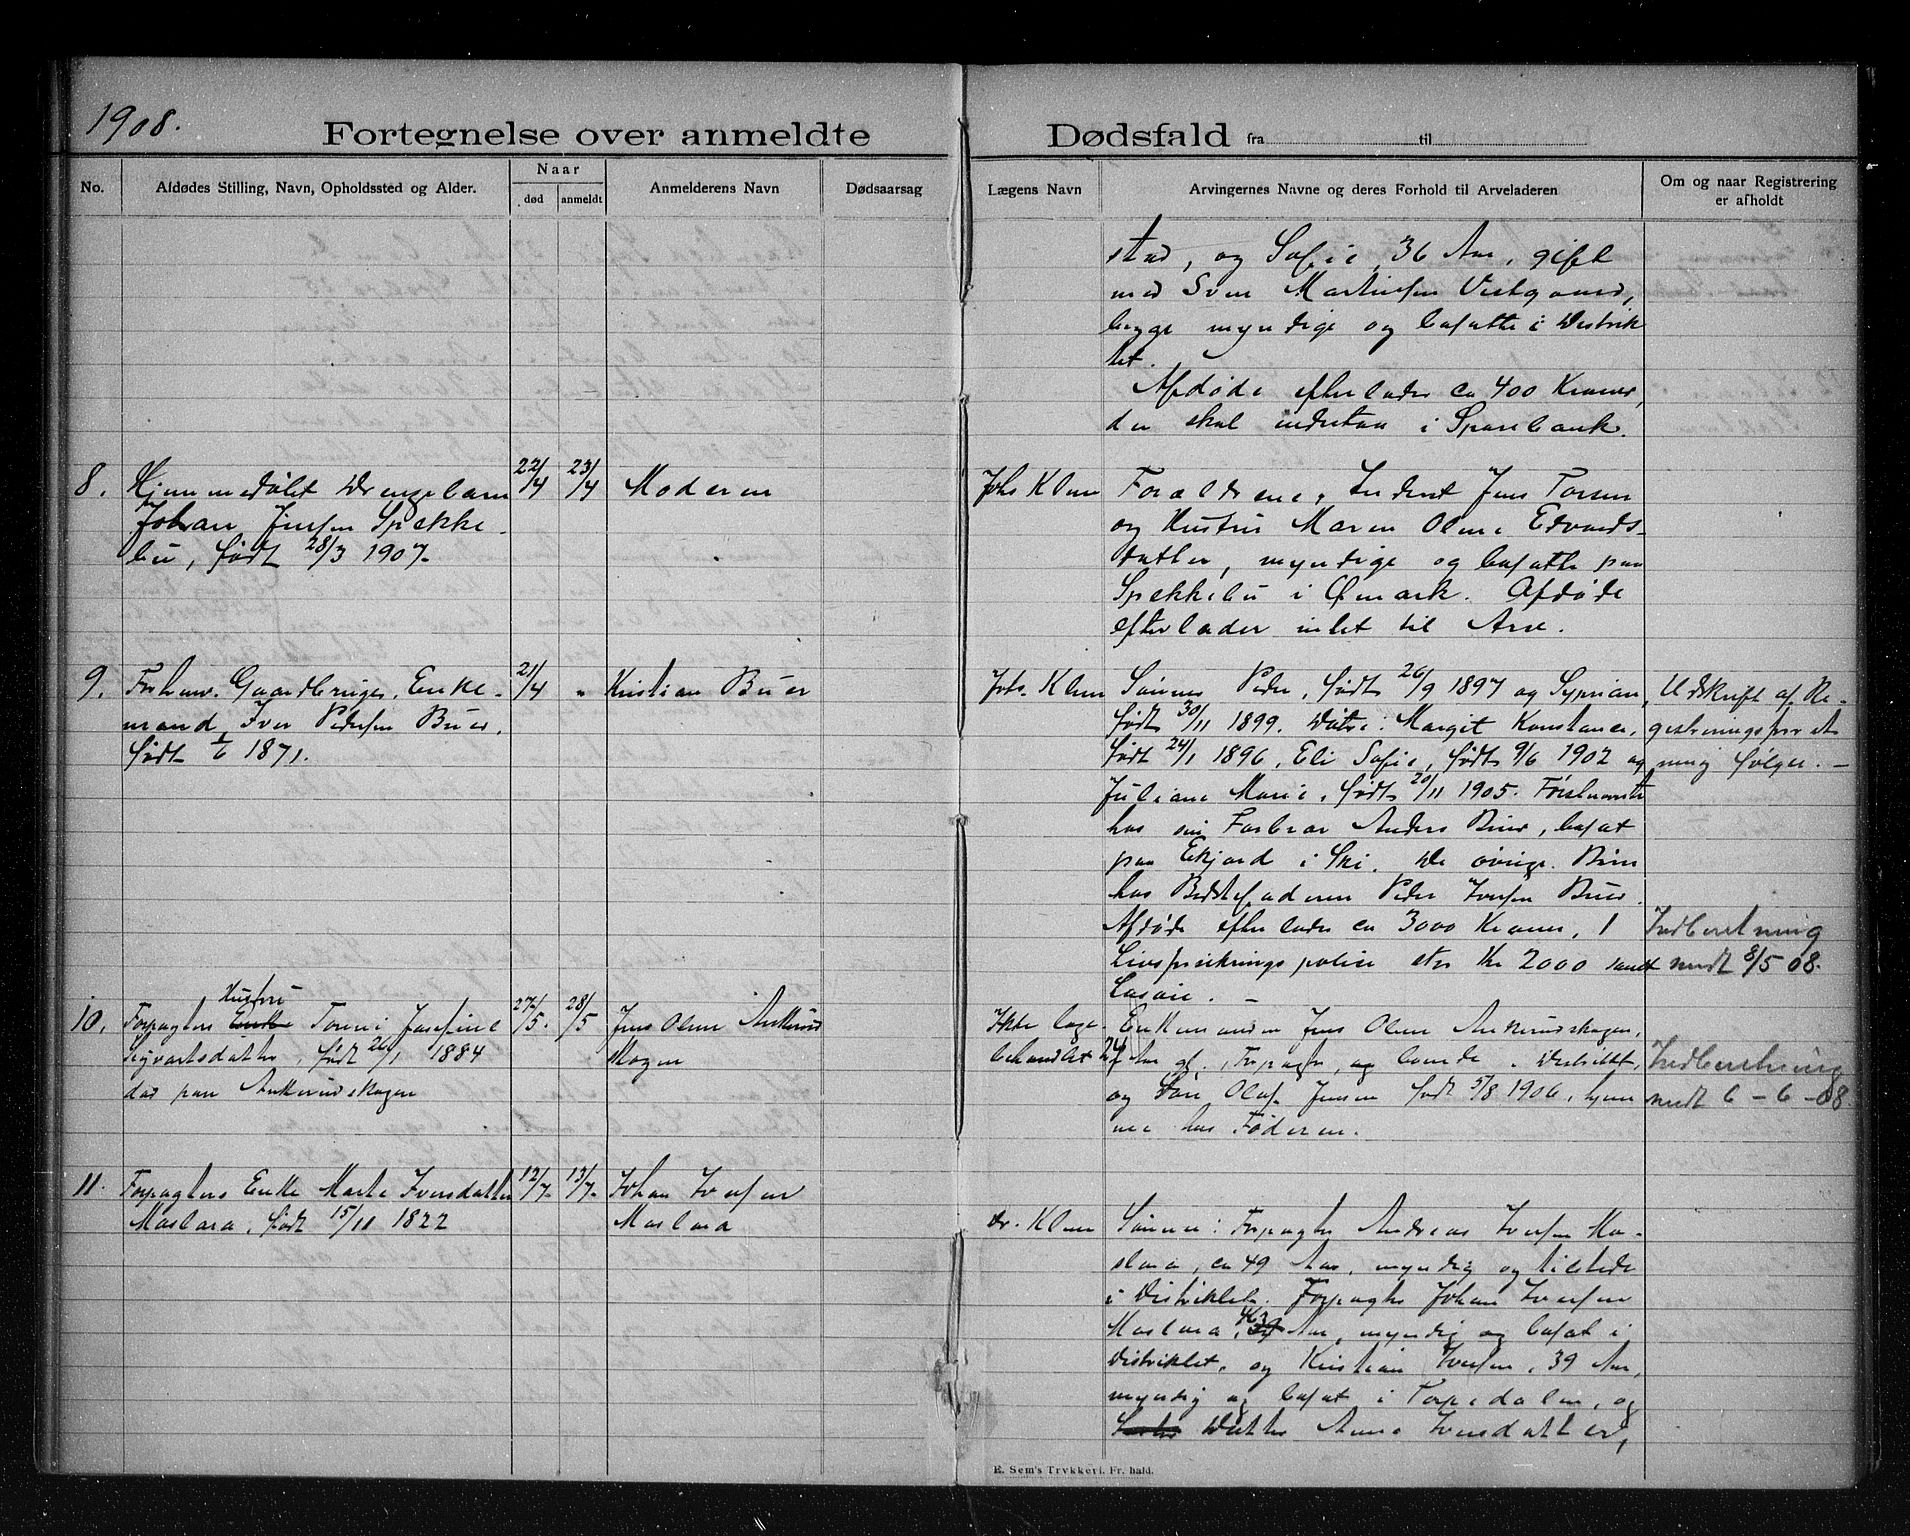 1908.
Fortegnelse over anmeldte
Dødsfald fra til
No.
Afdødes Stilling, Navn, Opholdssted og Alder.
Naar
død
anmeldt
Anmelderens Navn
Dødsaarsag
Lægens Navn
Arvingernes Navne og deres Forhold til Arveladeren
Om og naar Registrering
er afholdt
stad, og Sofie, 36 Aar, gift
med Sven Martinsen Vestgaard,
begge myndige og bosatte i Distrik
tet.
Afdøde efterlader ca 400 Kroner,
der skal indestaa i Sparebank.
8. Hjemmedøbt Drengebarn 22/4 23/4 Moderen
Johan Jensen Spække
bu, født 28/3 1907.
Johs Klem Forældrene, Inderst Jens Torsen
og Hustru Maren Oline Edvards
datter, myndige og bosatte paa
Spækkebu i Ømark. Afdøde
efterlader intet til Arv.
9. Forhenv. Gaardbruger, Enke- 21/4 " Kristian Buer
mand Iver Pedersen Buer,
født 1/6 1871.
Johs. Klem Sønner Peder, født 26/9 1897 og Syprian,
født 30/11 1899. Døtre: Margit Konstance,
født 24/1 1896, Eli Sofie, født 9/6 1902 og
Juliane Marie, født 20/11 1905. Førstnævnte
hos sin Farbror Anders Buer, bosat
paa Ekjord i Ski. De øvrige Børn
hos Bedstefaderen Peder Iversen Buer.
Afdøde efterlader ca 3000 Kroner, 1
Livsforsikringspolice stor Kr 2000 samt
Løsøre. –
Udskrift af Re-
gistreringsforret
ning følger. –
Indberetning
sendt 8/5 08.
Hustru
10. Forpagters Enke Tomine Josefine 27/5. 28/5 Jens Olsen Ankerud
Sigvartsdatter, født 26/1 1884
død paa Ankerudskogen
skogen
Ikke læge-
behandlet
Enkemanden Jens Olsen Ankerudskogen,
24 Aar gl., Forpagter, og boende i Distriktet,
og Søn Olaf Jensen født 5/8 1906, hjem
me hos Faderen.
Indberetning
sendt 6 - 6 - 08.
11. Forpagters Enke Marte Iversdatter 12/7. 13/7. Johan Iversen
Moslora, født 15/11 1822
Moslora
Dr. Klem Sønner: Forpagter Andreas Iversen Mo-
slora, ca 49 Aar, myndig og tilstede
i Distriktet. Forpagter Johan Iversen
Moslora, 43 Aar, myndig og bosat i
Distriktet, og Kristian Iversen, 39 Aar,
myndig og bosat i Torpedalen, og
Datter Anne Iversdatter,
E. Sem's Trykkeri. Fr. hald.